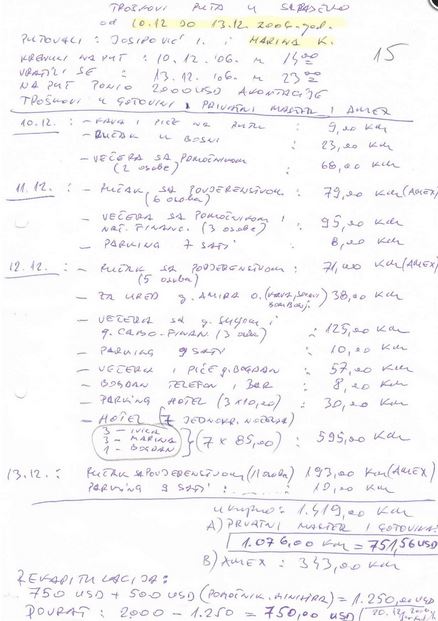 TROŠKOVI PUTA U SARAJEVO
od 10.12 DO 13.12. 2006. god.
PUTOVALI : JOSIPOVIĆ I. i MARINA K.
15
KRENULI NA PUT : 10.12. '06. u 14 00
VRATILI SE : 13.12. '06. u 23 00
NA PUT PONIO 2000 USD AKONTACIJE
TROŠKOVI U GOTOVINI, PRIVATNI MASTER I AMEX
10.12. : – KAVA I PIĆE NA PUTU : 9,00 KM
– RUČAK U BOSNI : 23,00 KM
– VEČERA SA POMOĆNIKOM : 68,00 KM
(2 osobe)
11.12. : – RUČAK SA POVJERENSTVOM : 79,00 KM (AMEX)
(6 osoba)
– VEČERA SA POMOĆNIKOM I
FINANC. (3 osobe) : 95,00 KM
– PARKING 7 SATI : 8,00 KM
12.12. : – RUČAK SA POVJERENSTVOM : 71,00 KM (AMEX)
(5 osoba)
– ZA URED g. AMIRA O. (KAVA, : 38,00 KM
– VEČERA SA g.
g. (3 osobe) : 125,00 KM
– PARKING 9 SATI : 10,00 KM
– VEČERA I PIĆE g. BOGDAN : 57,00 KM
– BOGDAN TELEFON I BAR : 8,00 KM
– PARKING HOTEL (3x10,00) : 30,00 KM
– HOTEL [7 JEDNOKR. NOĆENJA]
3 – IVICA
3 – MARINA
1 – BOGDAN
(7 x 85,00) : 595,00 KM
13.12. : RUČAK SA POVJERENSTVOM (11 osoba) 193,00 KM (AMEX)
PARKING 9 SATI : 10,00 KM
UKUPNO : 1.419,00 KM
A) PRIVATNI MASTER I GOTOVINA:
1.076,00 KM = 751,56 USD
B) AMEX : 343,00 KM
REKAPITULACIJA :
750 USD + 500 USD (POMOĆNIK. MINISTRA) = 1.250,00 USD
POVRAT : 2000 – 1.250 = 750,00 USD